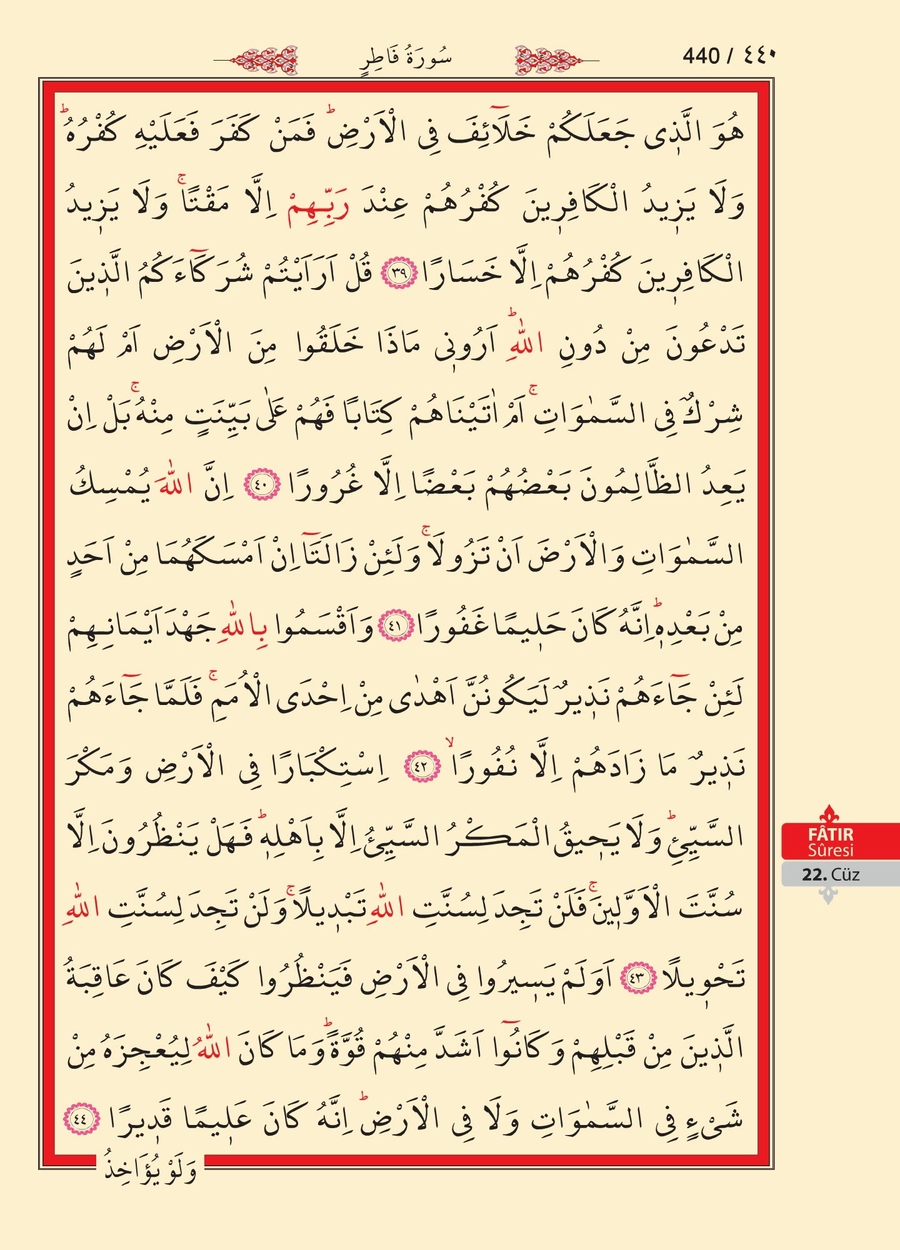 440 / ٤٤٠
سُورَةُ فَاطِرٍ
هُوَ الَّذ۪ى جَعَلَكُمْ خَلَٓائِفَ فِى الْاَرْضِۜ فَمَنْ كَفَرَ فَعَلَيْهِ كُفْرُهُۜ
وَلَا يَز۪يدُ الْكَافِر۪ينَ كُفْرُهُمْ عِنْدَ رَبِّهِمْ اِلَّا مَقْتًاۚ وَلَا يَز۪يدُ
الْكَافِر۪ينَ كُفْرُهُمْ اِلَّا خَسَارًا ﴿٣٩﴾ قُلْ اَرَاَيْتُمْ شُرَكَٓاءَكُمُ الَّذ۪ينَ
تَدْعُونَ مِنْ دُونِ اللّٰهِۜ اَرُون۪ى مَاذَا خَلَقُوا مِنَ الْاَرْضِ اَمْ لَهُمْ
شِرْكٌ فِى السَّمٰوَاتِۚ اَمْ اٰتَيْنَاهُمْ كِتَابًا فَهُمْ عَلٰى بَيِّنَتٍ مِنْهُۚ بَلْ اِنْ
يَعِدُ الظَّالِمُونَ بَعْضُهُمْ بَعْضًا اِلَّا غُرُورًا ﴿٤٠﴾ اِنَّ اللّٰهَ يُمْسِكُ
السَّمٰوَاتِ وَالْاَرْضَ اَنْ تَزُولَاۚ وَلَئِنْ زَالَتَٓا اِنْ اَمْسَكَهُمَا مِنْ اَحَدٍ
مِنْ بَعْدِه۪ۜ اِنَّهُ كَانَ حَل۪يمًا غَفُورًا ﴿٤١﴾ وَاَقْسَمُوا بِاللّٰهِ جَهْدَ اَيْمَانِهِمْ
لَئِنْ جَٓاءَهُمْ نَذ۪يرٌ لَيَكُونُنَّ اَهْدٰى مِنْ اِحْدَى الْاُمَمِۚ فَلَمَّا جَٓاءَهُمْ
نَذ۪يرٌ مَا زَادَهُمْ اِلَّا نُفُورًاۙ ﴿٤٢﴾ اِسْتِكْبَارًا فِى الْاَرْضِ وَمَكْرَ
السَّيِّئِۜ وَلَا يَح۪يقُ الْمَكْرُ السَّيِّئُ اِلَّا بِاَهْلِه۪ۜ فَهَلْ يَنْظُرُونَ اِلَّا
سُنَّتَ الْاَوَّل۪ينَۚ فَلَنْ تَجِدَ لِسُنَّتِ اللّٰهِ تَبْد۪يلًاۚ وَلَنْ تَجِدَ لِسُنَّتِ اللّٰهِ
تَحْو۪يلًا ﴿٤٣﴾ اَوَلَمْ يَس۪يرُوا فِى الْاَرْضِ فَيَنْظُرُوا كَيْفَ كَانَ عَاقِبَةُ
الَّذ۪ينَ مِنْ قَبْلِهِمْ وَكَانُٓوا اَشَدَّ مِنْهُمْ قُوَّةًۜ وَمَا كَانَ اللّٰهُ لِيُعْجِزَهُ مِنْ
شَىْءٍ فِى السَّمٰوَاتِ وَلَا فِى الْاَرْضِۜ اِنَّهُ كَانَ عَل۪يمًا قَد۪يرًا ﴿٤٤﴾
وَلَوْ يُؤَاخِذُ
FÂTIR
Sûresi
22. Cüz